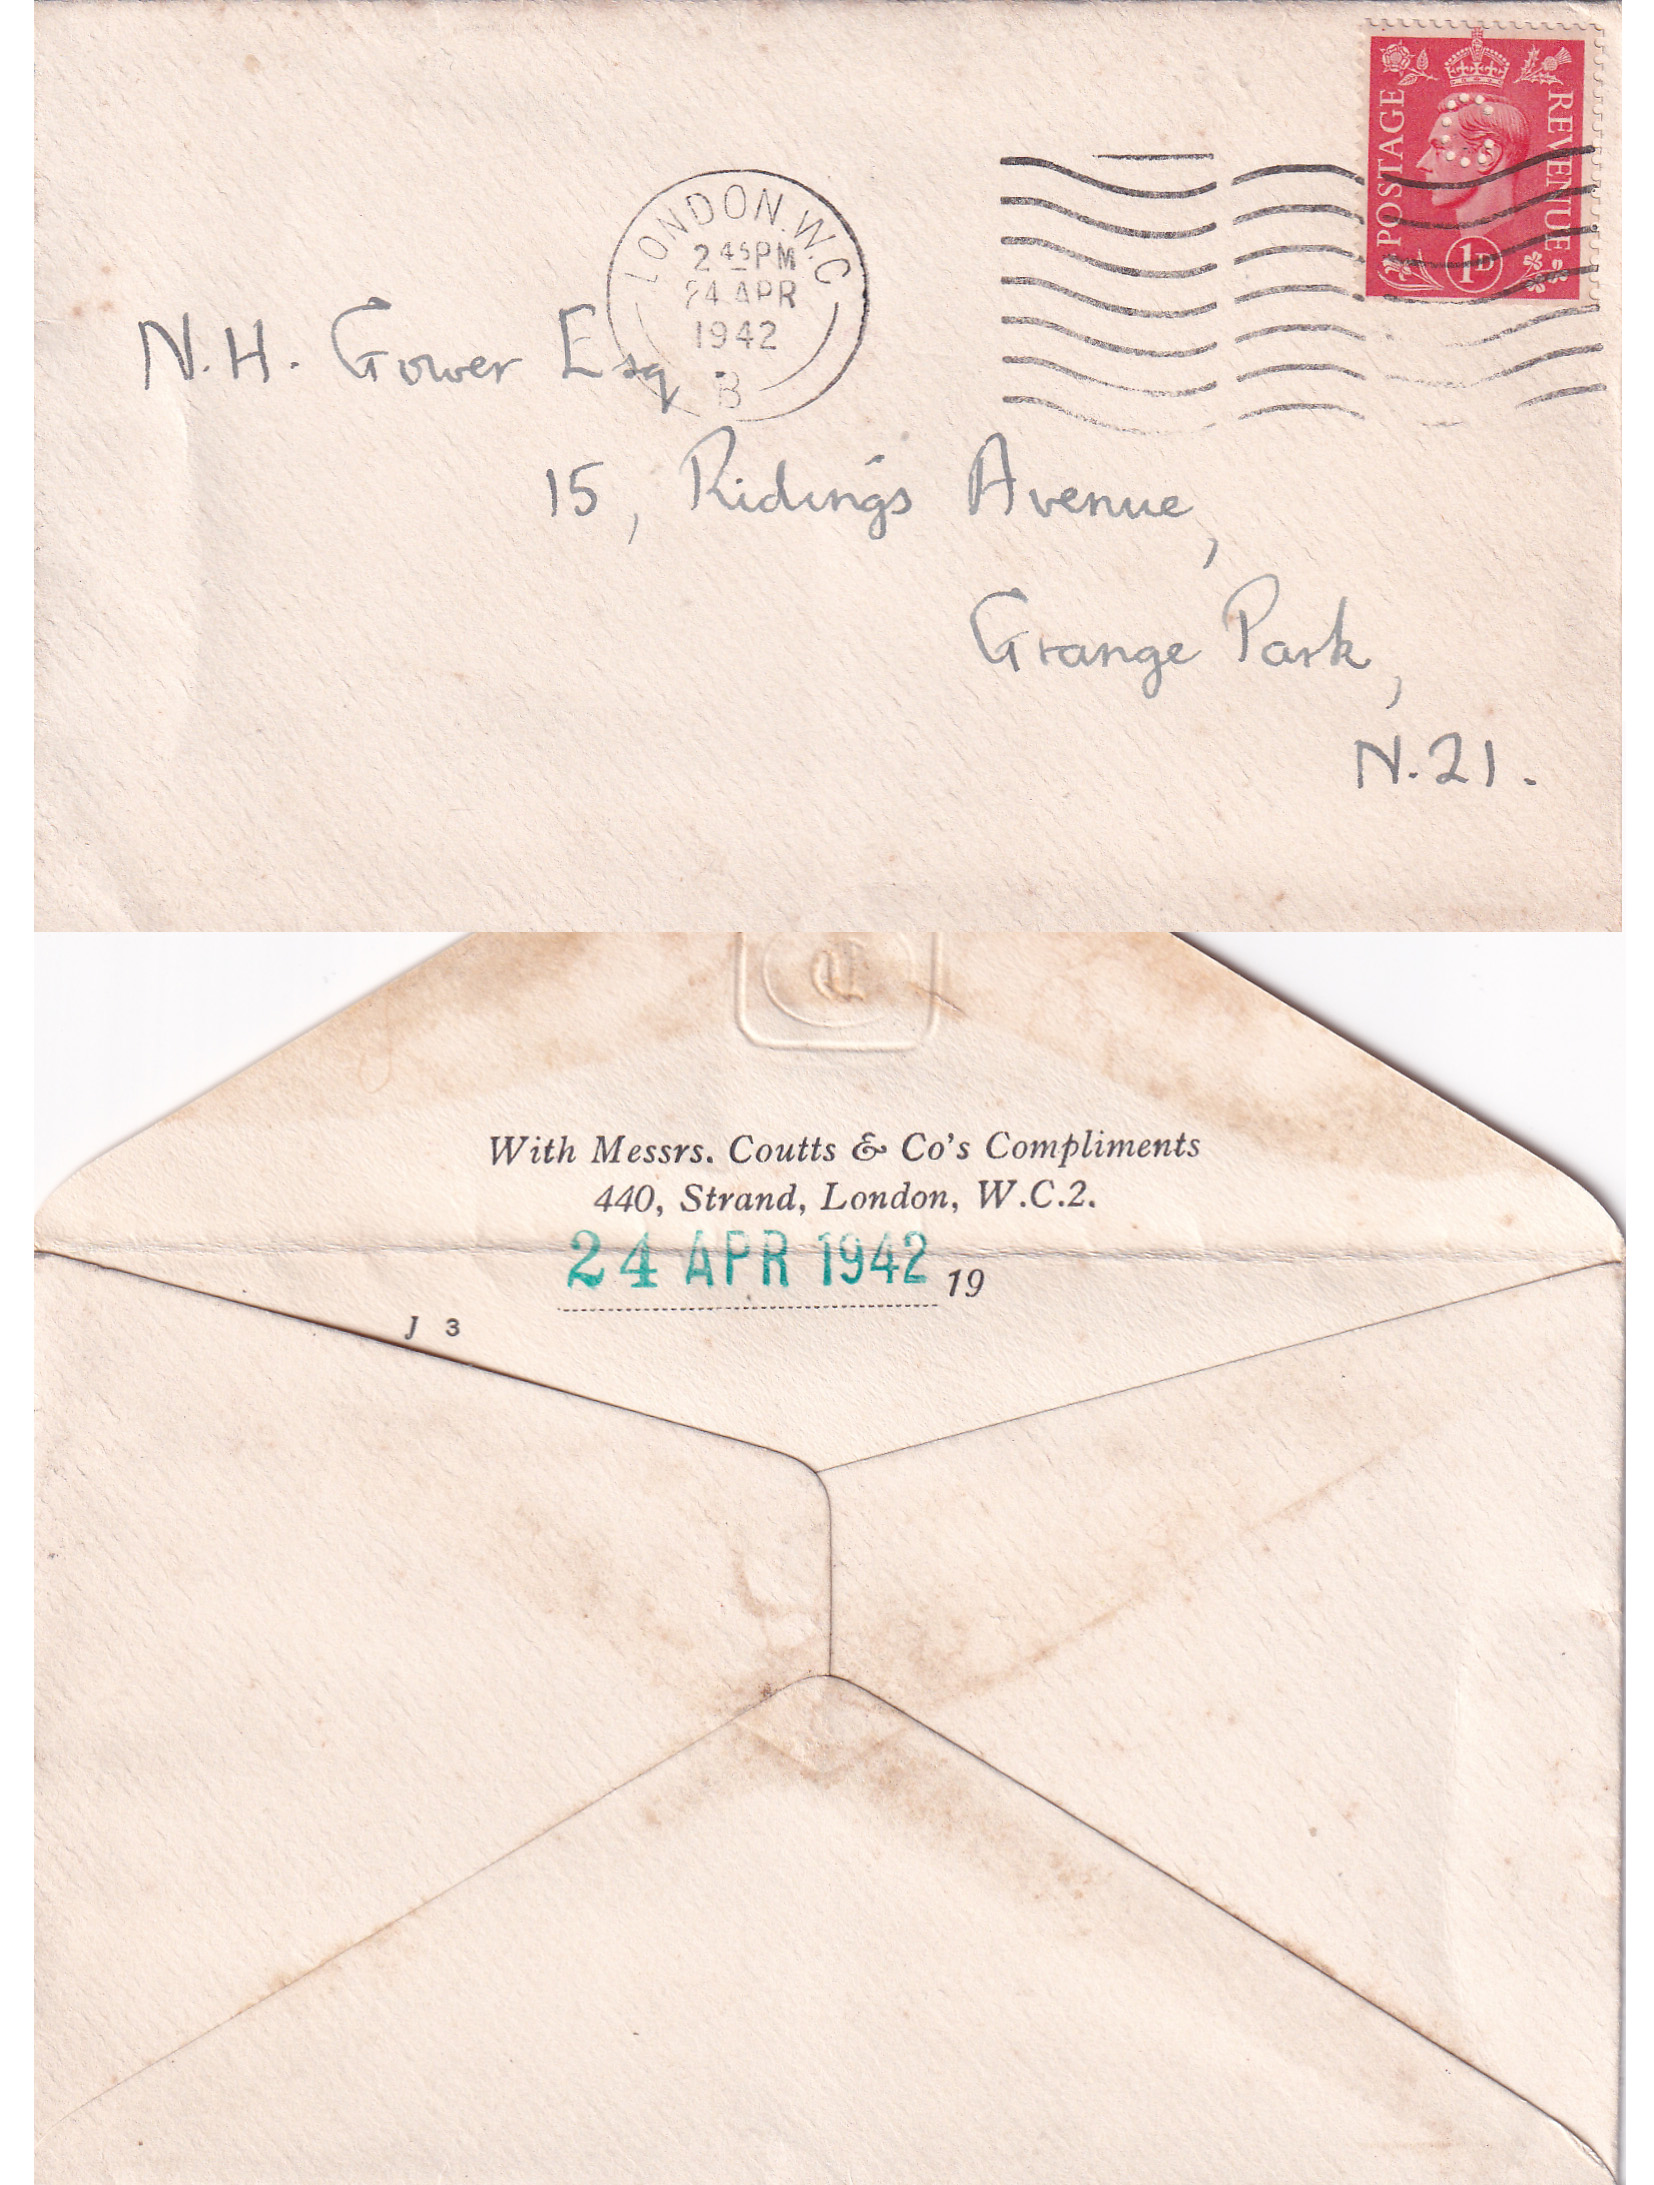 POSTAGE
REVENUE
1D
LONDON.W.C
2 45 PM
24 APR
1942
B
N.H. Gower Esq
15, Ridings Avenue,
Grange Park,
N.21.
With Messrs. Coutts & Co's Compliments
440, Strand, London, W.C.2.
24 APR 1942 19
J 3